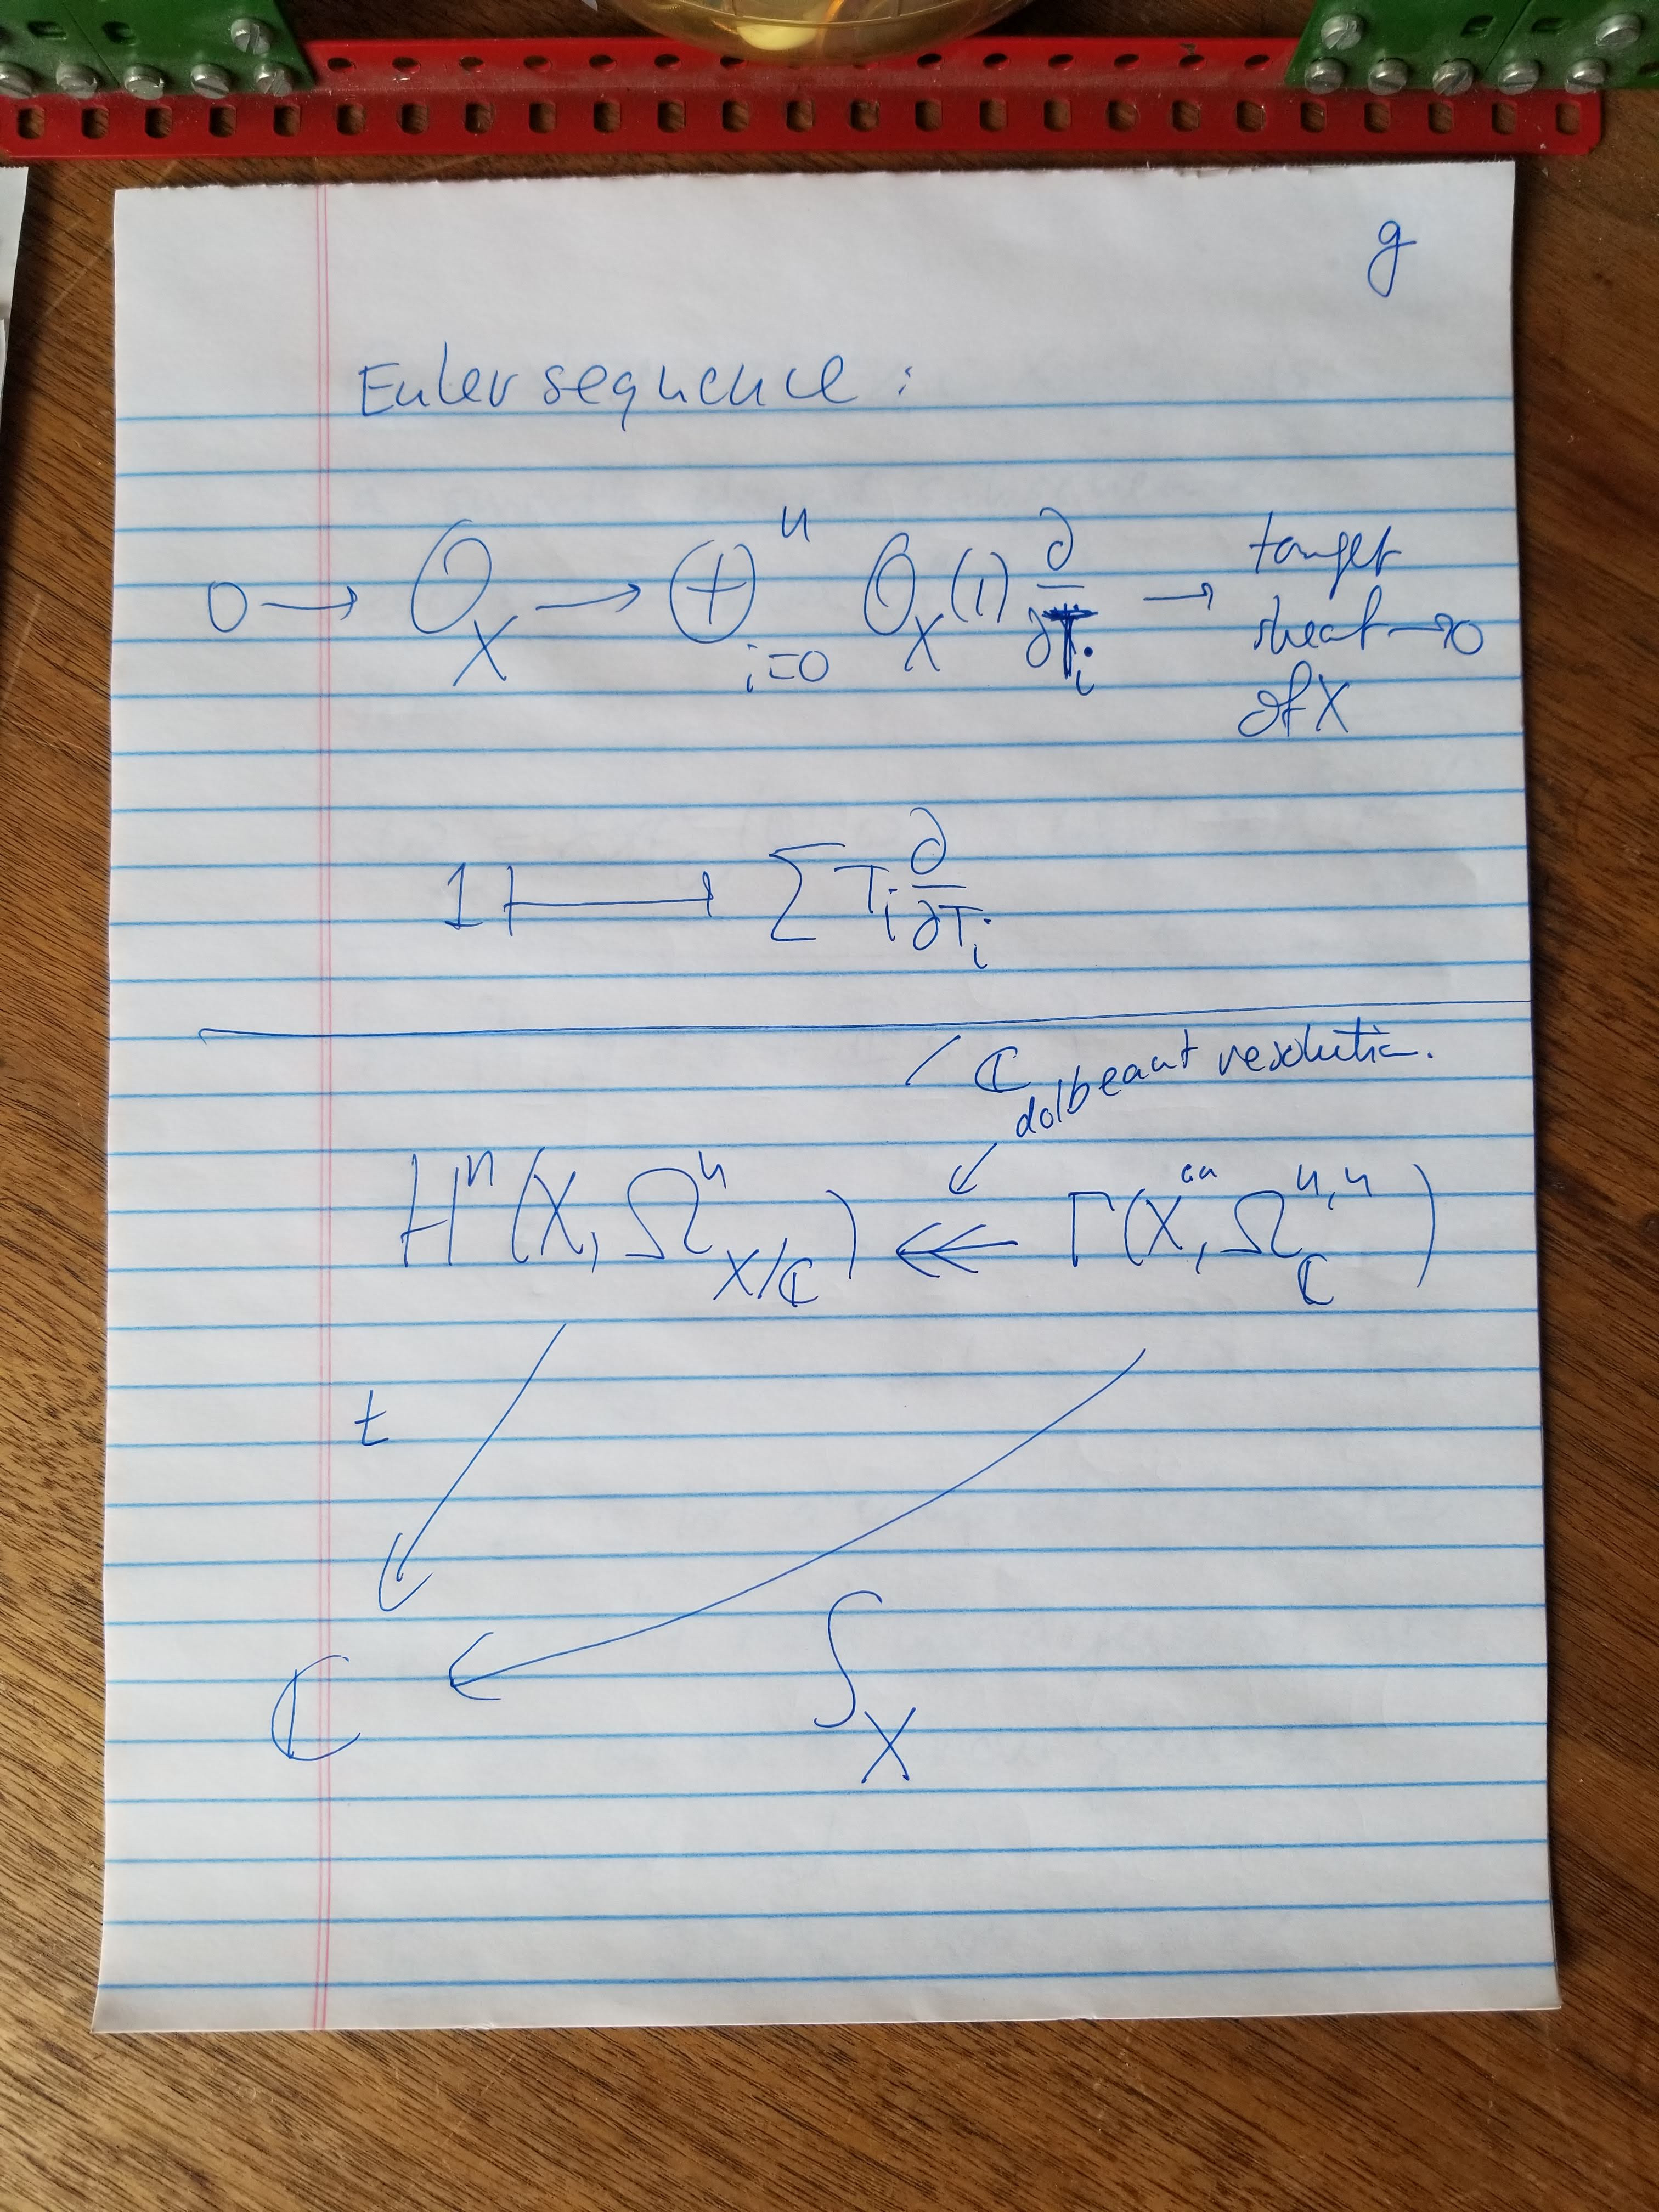 g
Euler sequence:
0 → O_X → ⊕_{i=0}^n O_X(1) ∂/∂T_i → tanget sheaf of X → 0
1 ↦ Σ T_i ∂/∂T_i
/ ℂ dolbeaut resolution.
H^n(X, Ω^n_{X/ℂ}) ↞ Γ(X^{an}, Ω^{n,n}_ℂ)
t
ℂ ∫_X